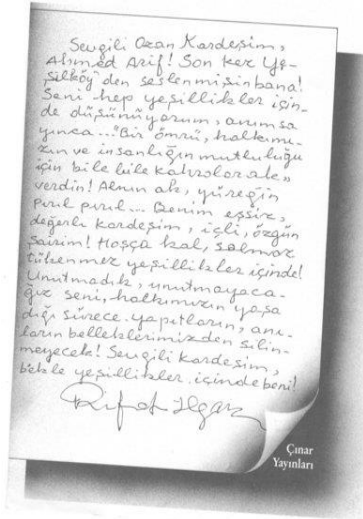 Sevgili Ozan Kardeşim,
Ahmed Arif! Son kez Ye-
şilköy'den seslenmişsin bana!
Seni hep yeşillikler için-
de düşünüyorum, anımsa
yınca... "Bir ömrü, halkımı-
zın ve insanlığın mutluluğu
için bile bile kahrolarak"
verdin! Alnın ak, yüreğin
pırıl pırıl... Benim eşsiz,
değerli kardeşim, içli, özgün
şairim! Hoşça kal, solmaz
tükenmez yeşillikler içinde!
Unutmadık, unutmayaca-
ğız seni, halkımızın yaşa
dığı sürece. yapıtların, anı-
ların belleklerimizden silin-
meyecek! Sevgili kardeşim,
bekle yeşillikler içinde beni!
Rıfat Ilgaz
Çınar
Yayınları